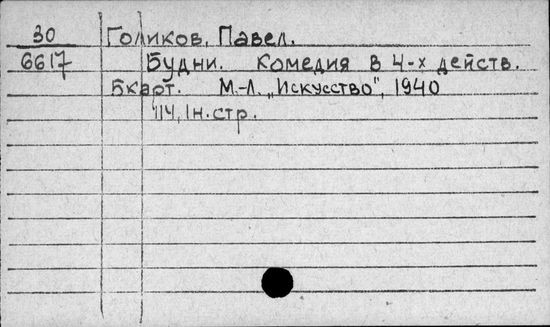 30 Голиков, Павел.
6617 Будни. Комедия в 4-х действ.
6карт. М.-Л. „Искусство", 1940
114, 1н. стр.